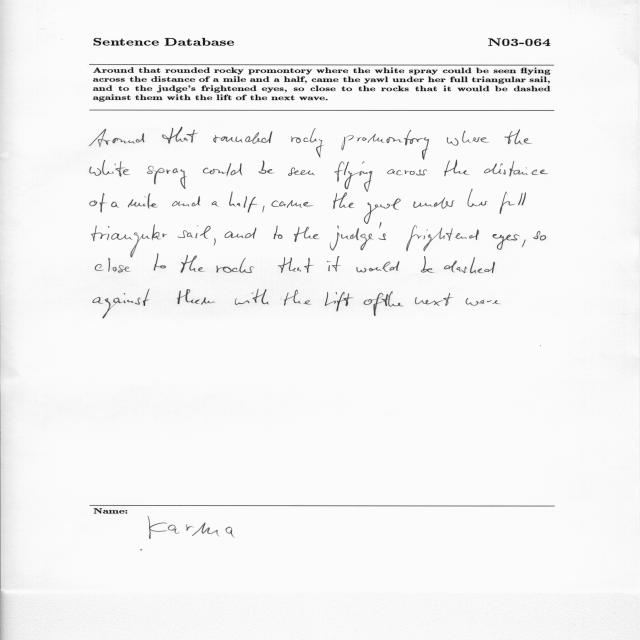 Sentence Database N03-064
Around that rounded rocky promontory where the white spray could be seen flying
across the distance of a mile and a half, came the yawl under her full triangular sail,
and to the judge's frightened eyes, so close to the rocks that it would be dashed
against them with the lift of the next wave.
Around that rounded rocky promontory where the
white spray could be seen flying across the distance
of a mile and a half, came the yawl under her full
triangular sail, and to the judge's frightend eyes, so
close to the rocks that it would be dashed
against them with the lift of the next wave
Name:
Karma